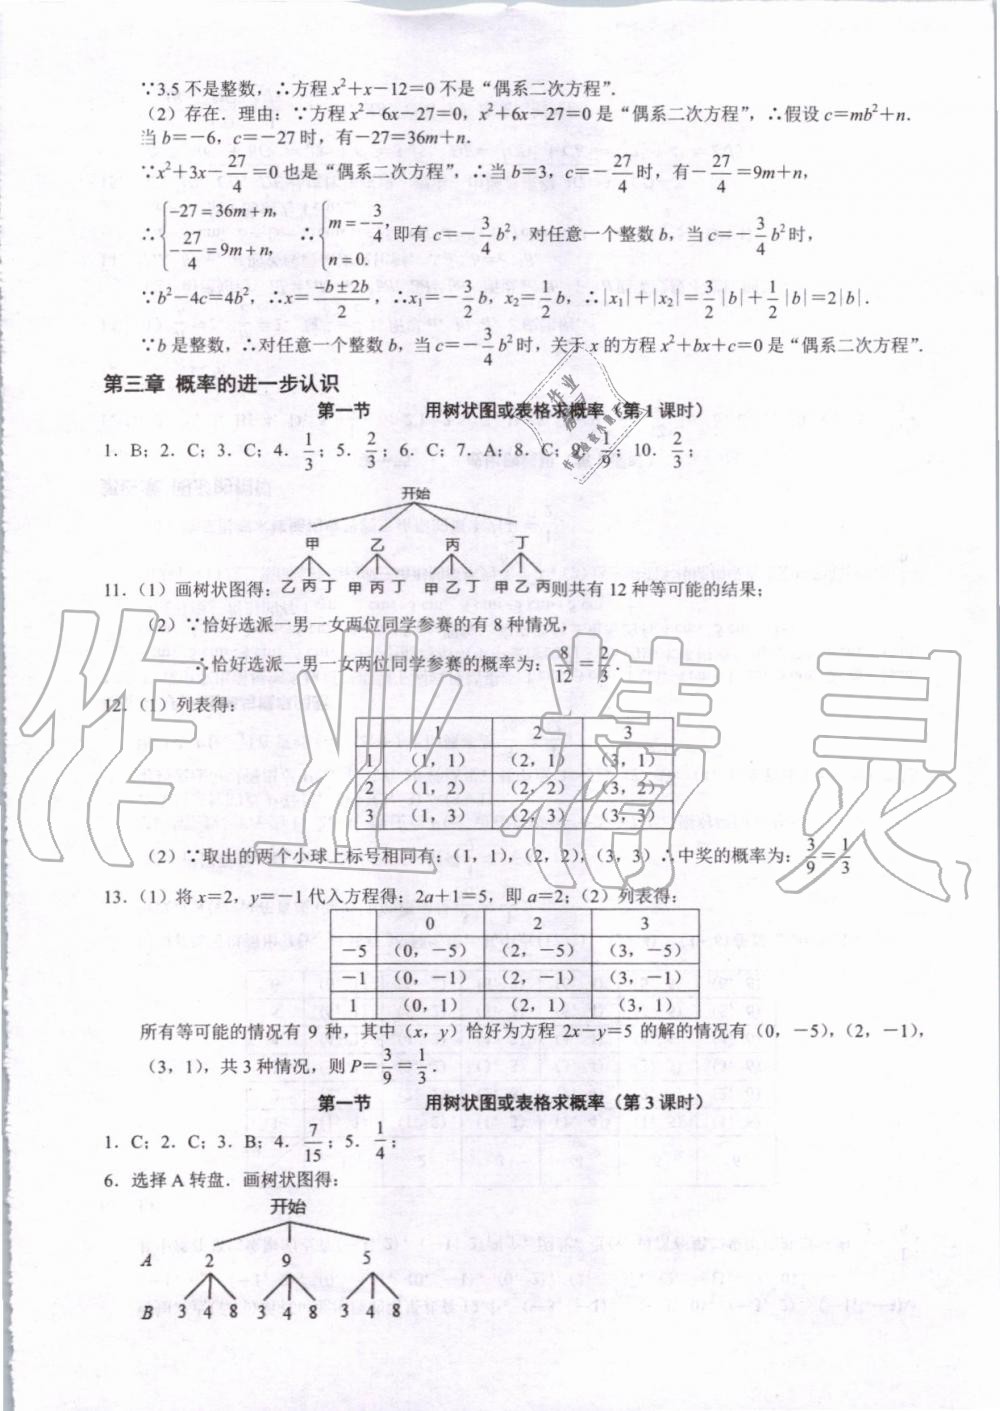 ∵3.5 不是整数，∴方程 x²+x－12=0 不是“偶系二次方程”.
（2）存在．理由：∵方程 x²－6x－27=0，x²+6x－27=0 是“偶系二次方程”，∴假设 c=mb²+n．
当 b=－6，c=－27 时，有－27=36m+n．
∵x²+3x－27/4=0 也是“偶系二次方程”，∴当 b=3，c=－27/4 时，有－27/4=9m+n，
∴{－27=36m+n，－27/4=9m+n， ∴{m=－3/4，n=0. 即有 c=－3/4 b²，对任意一个整数 b，当 c=－3/4 b²时，
∵b²－4c=4b²，∴x=(－b±2b)/2，∴x₁=－3/2 b，x₂=1/2 b，∴|x₁|+|x₂|=3/2|b|+1/2|b|=2|b|．
∵b 是整数，∴对任意一个整数 b，当 c=－3/4 b²时，关于 x 的方程 x²+bx+c=0 是“偶系二次方程”.
第三章 概率的进一步认识
第一节 用树状图或表格求概率（第 1 课时）
1．B；2．C；3．C；4．1/3；5．2/3；6．C；7．A；8．C；9．1/9；10．2/3；
开始
甲 乙 丙 丁
11．（1）画树状图得：乙 丙 丁 甲 丙 丁 甲 乙 丁 甲 乙 丙 则共有 12 种等可能的结果；
（2）∵恰好选派一男一女两位同学参赛的有 8 种情况，
∴恰好选派一男一女两位同学参赛的概率为：8/12=2/3．
12．（1）列表得：
1 2 3
1 （1，1） （2，1） （3，1）
2 （1，2） （2，2） （3，2）
3 （1，3） （2，3） （3，3）
（2）∵取出的两个小球上标号相同有：（1，1），（2，2），（3，3）∴中奖的概率为：3/9=1/3
13．（1）将 x=2，y=－1 代入方程得：2a+1=5，即 a=2；（2）列表得：
0 2 3
－5 （0，－5） （2，－5） （3，－5）
－1 （0，－1） （2，－1） （3，－1）
1 （0，1） （2，1） （3，1）
所有等可能的情况有 9 种，其中（x，y）恰好为方程 2x－y=5 的解的情况有（0，－5），（2，－1），
（3，1），共 3 种情况，则 P=3/9=1/3．
第一节 用树状图或表格求概率（第 3 课时）
1．C；2．C；3．B；4．7/15；5．1/4；
6．选择 A 转盘．画树状图得：
开始
A 2 9 5
B 3 4 8 3 4 8 3 4 8
作业精灵